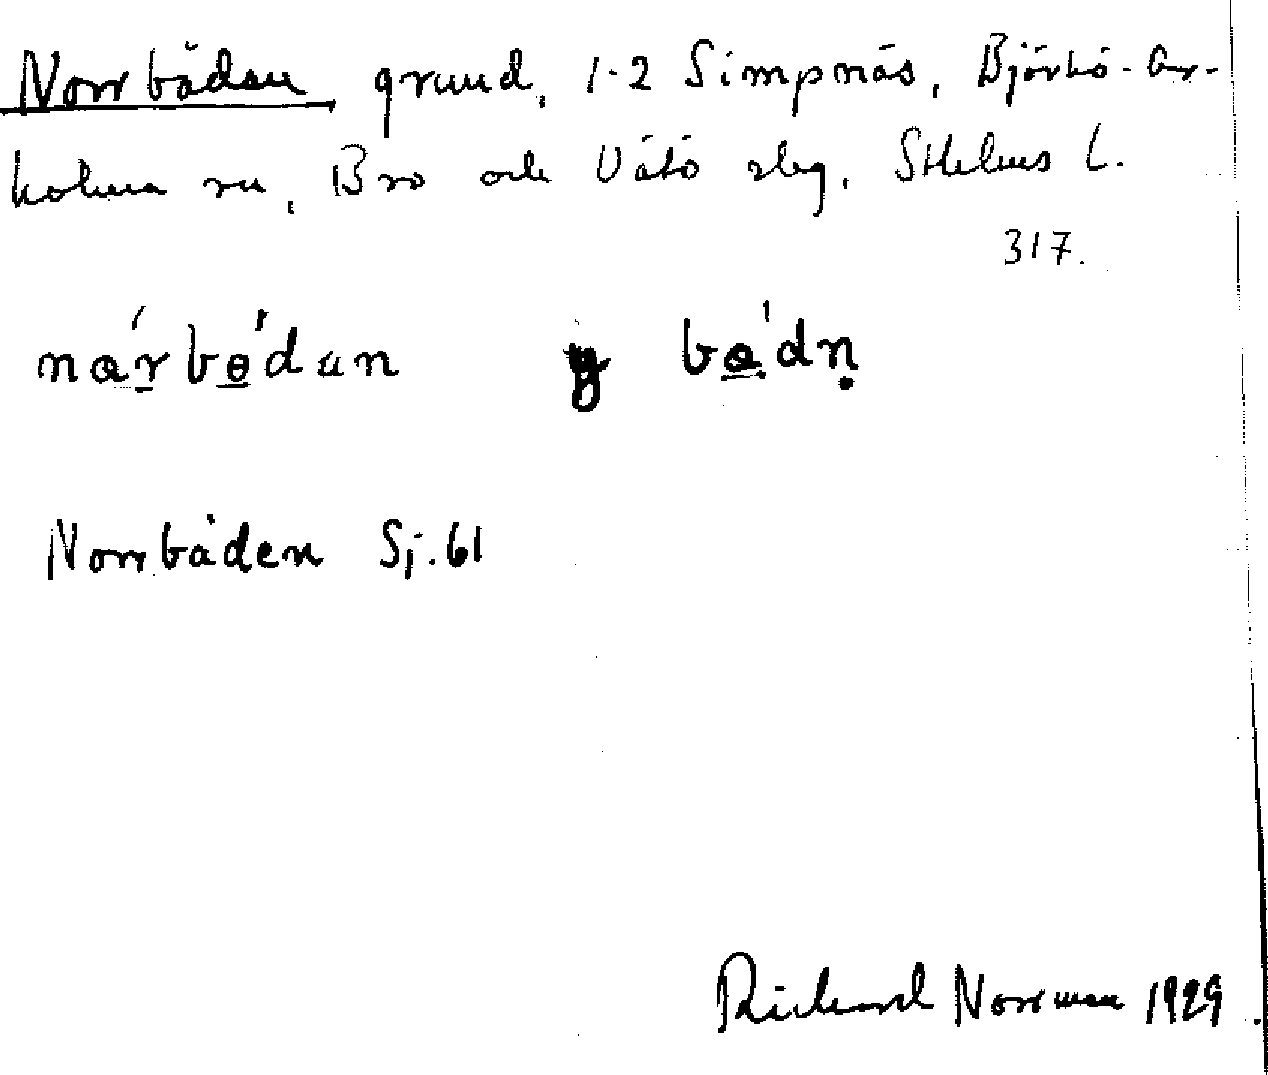 Norrbåden grund, 1-2 Simpnäs, Björkö-Ar-
holma sn, Bro och Vätö slg, Sthlms L.
317.
nárbǿdan y bǿdṇ
Norrbåden Sj. 61
Richard Norrman 1929.